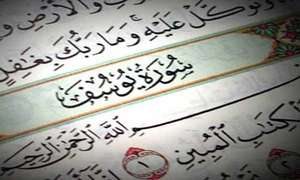 وَالْأَرْضِ
وَتَوَكَّلْ عَلَيْهِ وَمَا رَبُّكَ بِغَٰفِلٍ
سُورَةُ يُوسُفَ
اللَّهِ الرَّحْمَٰنِ الرَّحِيمِ
الْكِتَٰبِ الْمُبِينِ ١